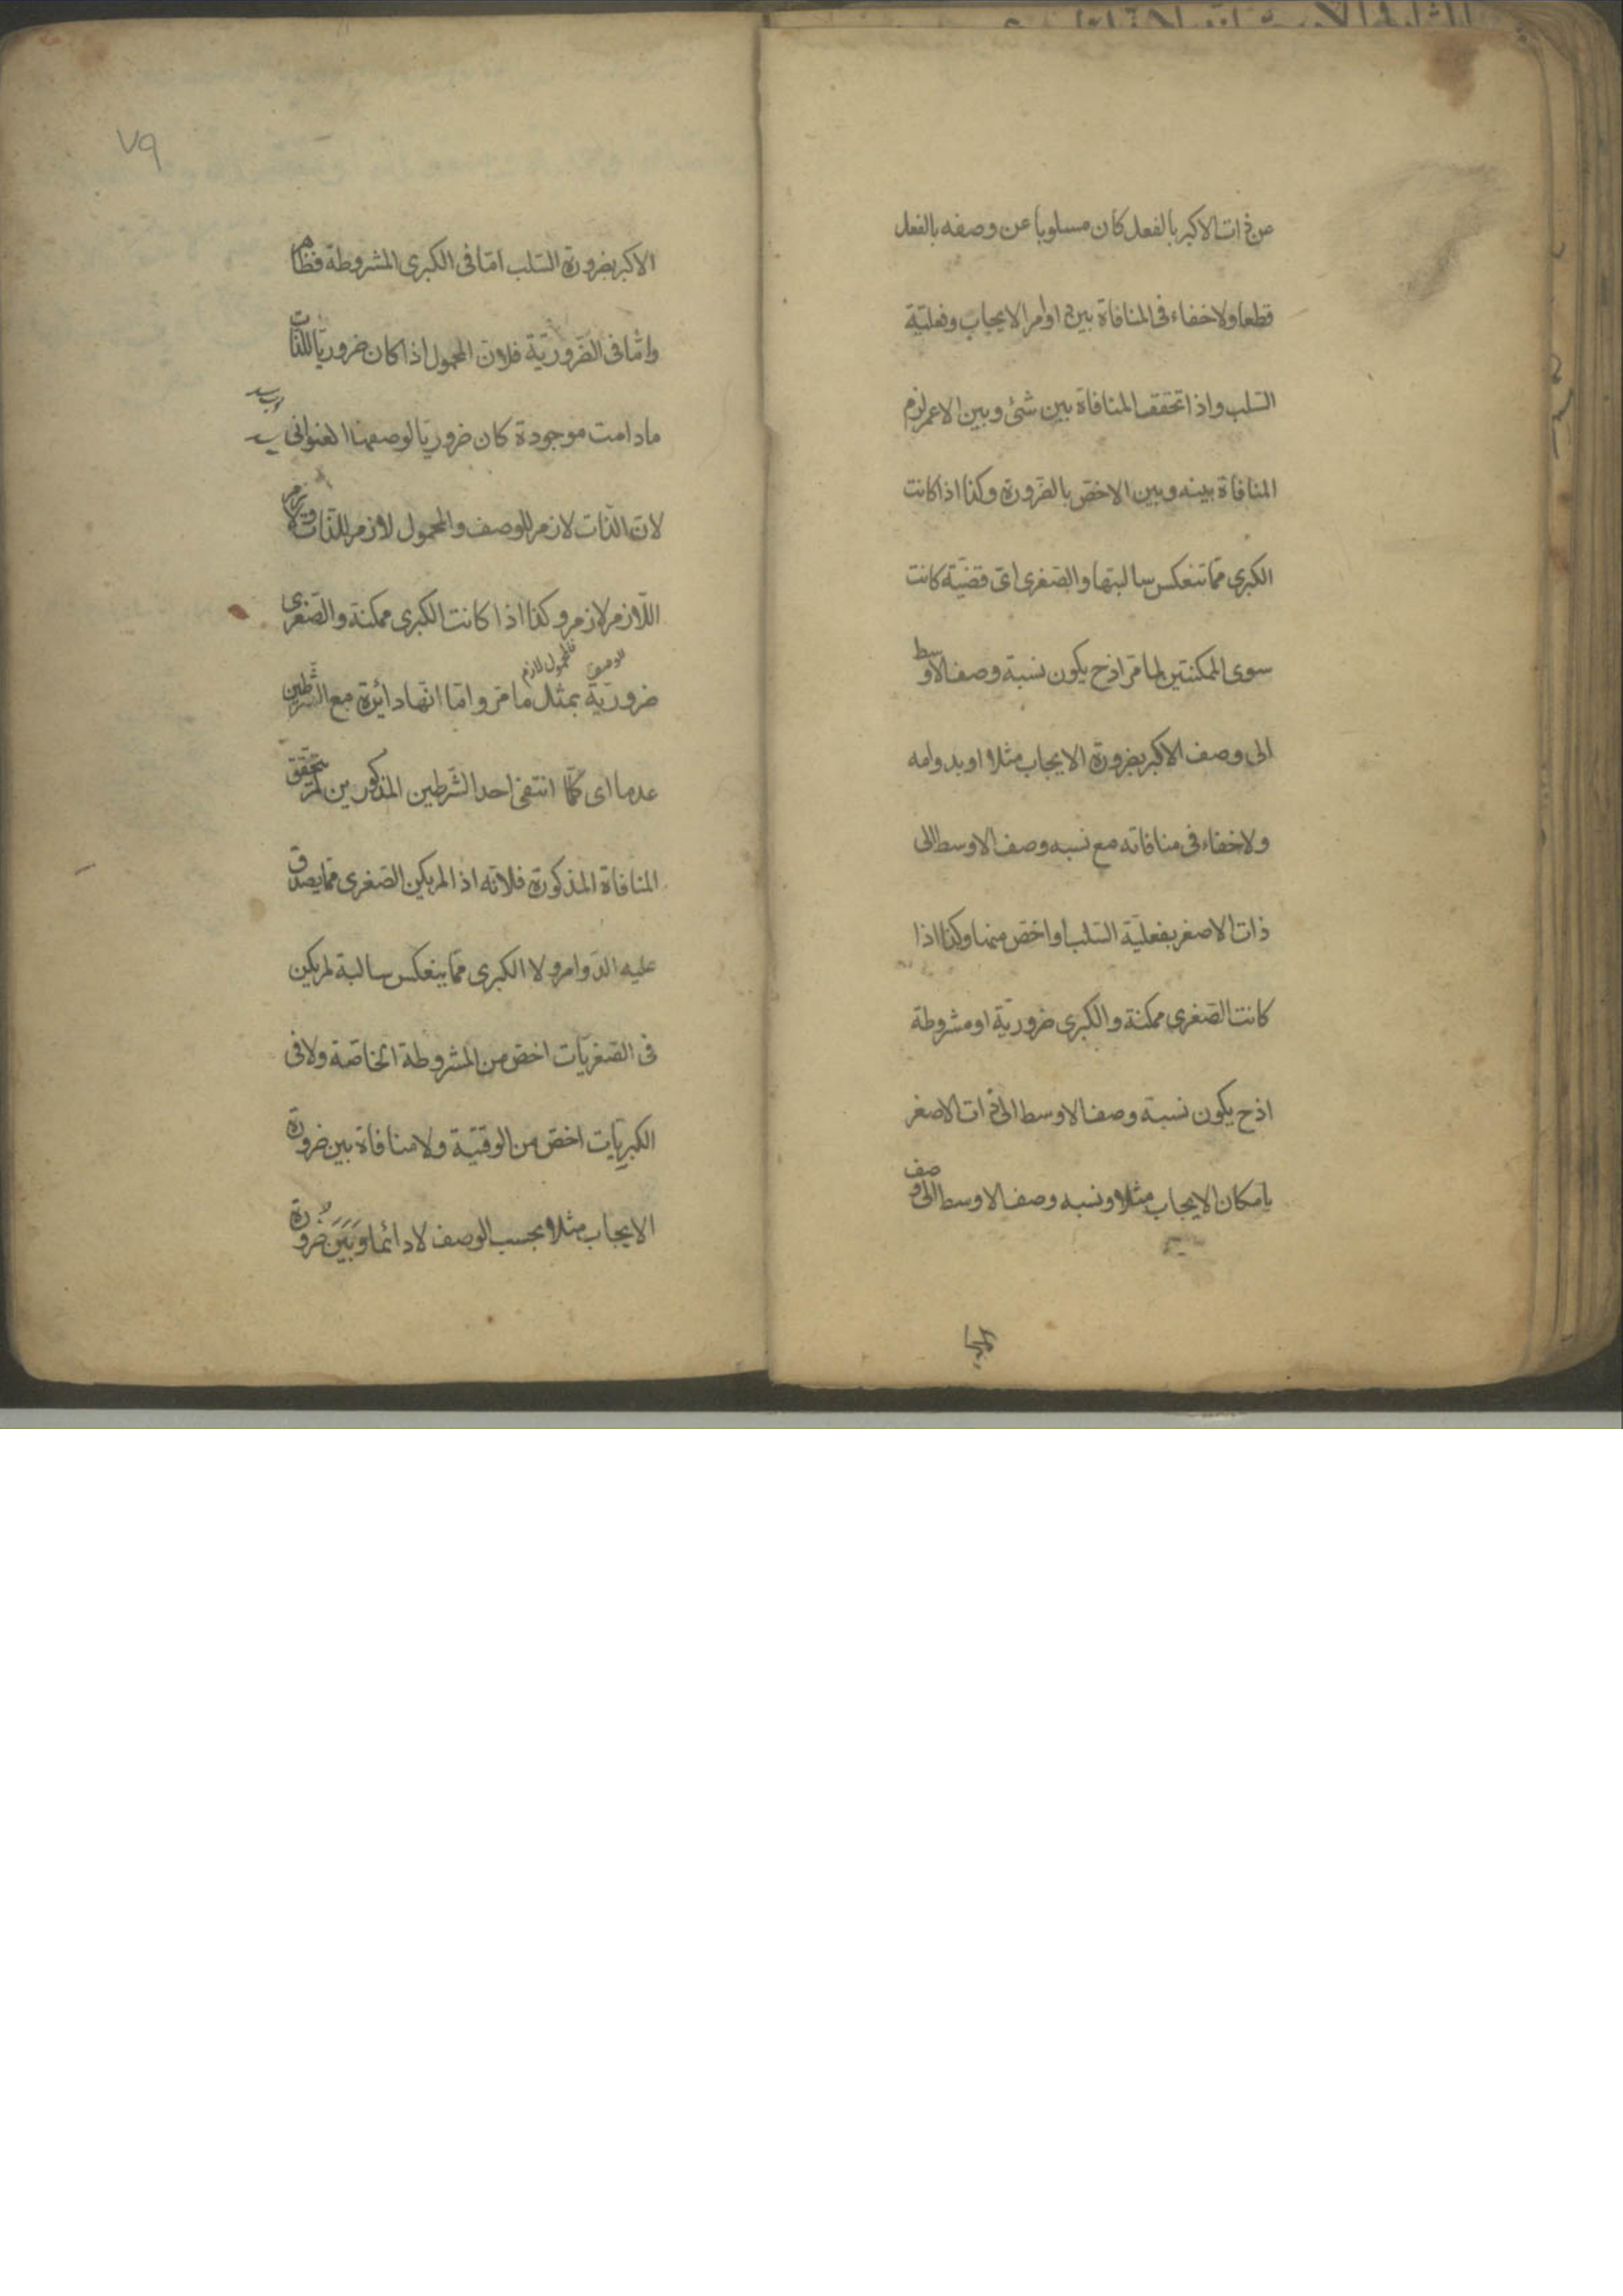 من ذات الاكبر بالفعل كان مسلوبا عن وصفه بالفعل
قطعا ولا خفاء فى المنافاة بين دوام الايجاب وفعليّة
السّلب واذا تحقق المنافاة بين شئ وبين الاعم لزم
المنافاة بينه وبين الاخصّ بالضّرورة وكذا اذا كانت
الكبرى ممّا تنعكس سالبتها والصّغرى اىّ قضيّة كانت
سوى الممكنتين لما مرّ اذ ح يكون نسبة وصف الاوسط
الى وصف الاكبر بضرورة الايجاب مثلا او بدوامه
ولا خفاء فى منافاته مع نسبه وصف الاوسط الى
ذات الاصغر بفعليّة السّلب او اخصّ منها وكذا اذا
كانت الصّغرى ممكنة والكبرى ضروريّة او مشروطة
اذ ح يكون نسبة وصف الاوسط الى ذات الاصغر
بامكان الايجاب مثلا ونسبه وصف الاوسط الى وصف
٧٩
الاكبر بضرورة السّلب امّا فى الكبرى المشروطة فظاهر
وامّا فى الضّروريّة فلانّ المحمول اذا كان ضروريّا للذّات
مادامت موجودة كان ضروريّا لوصفها العنوانى
لانّ الذّات لازم للوصف والمحمول لازم للذّات ولازم
اللّازم لازم وكذا اذا كانت الكبرى ممكنة والصّغرى
فالمحمول لازم للوصف
ضروريّة بمثل ما مرّ وامّا انّها دائرة مع الشّرطين
عدما اى كلّما انتفى احد الشّرطين المذكورين لم يتحقّق
المنافاة المذكورة فلانّه اذا لم يكن الصّغرى ممّا يصدق
عليه الدّوام ولا الكبرى ممّا ينعكس سالبة لم يكن
فى الصّغريّات اخصّ من المشروطة الخاصّة ولا فى
الكبريات اخصّ من الوقتيّة ولا منافاة بين ضرورة
الايجاب مثلا بحسب الوصف لا دائما وبين ضرورة